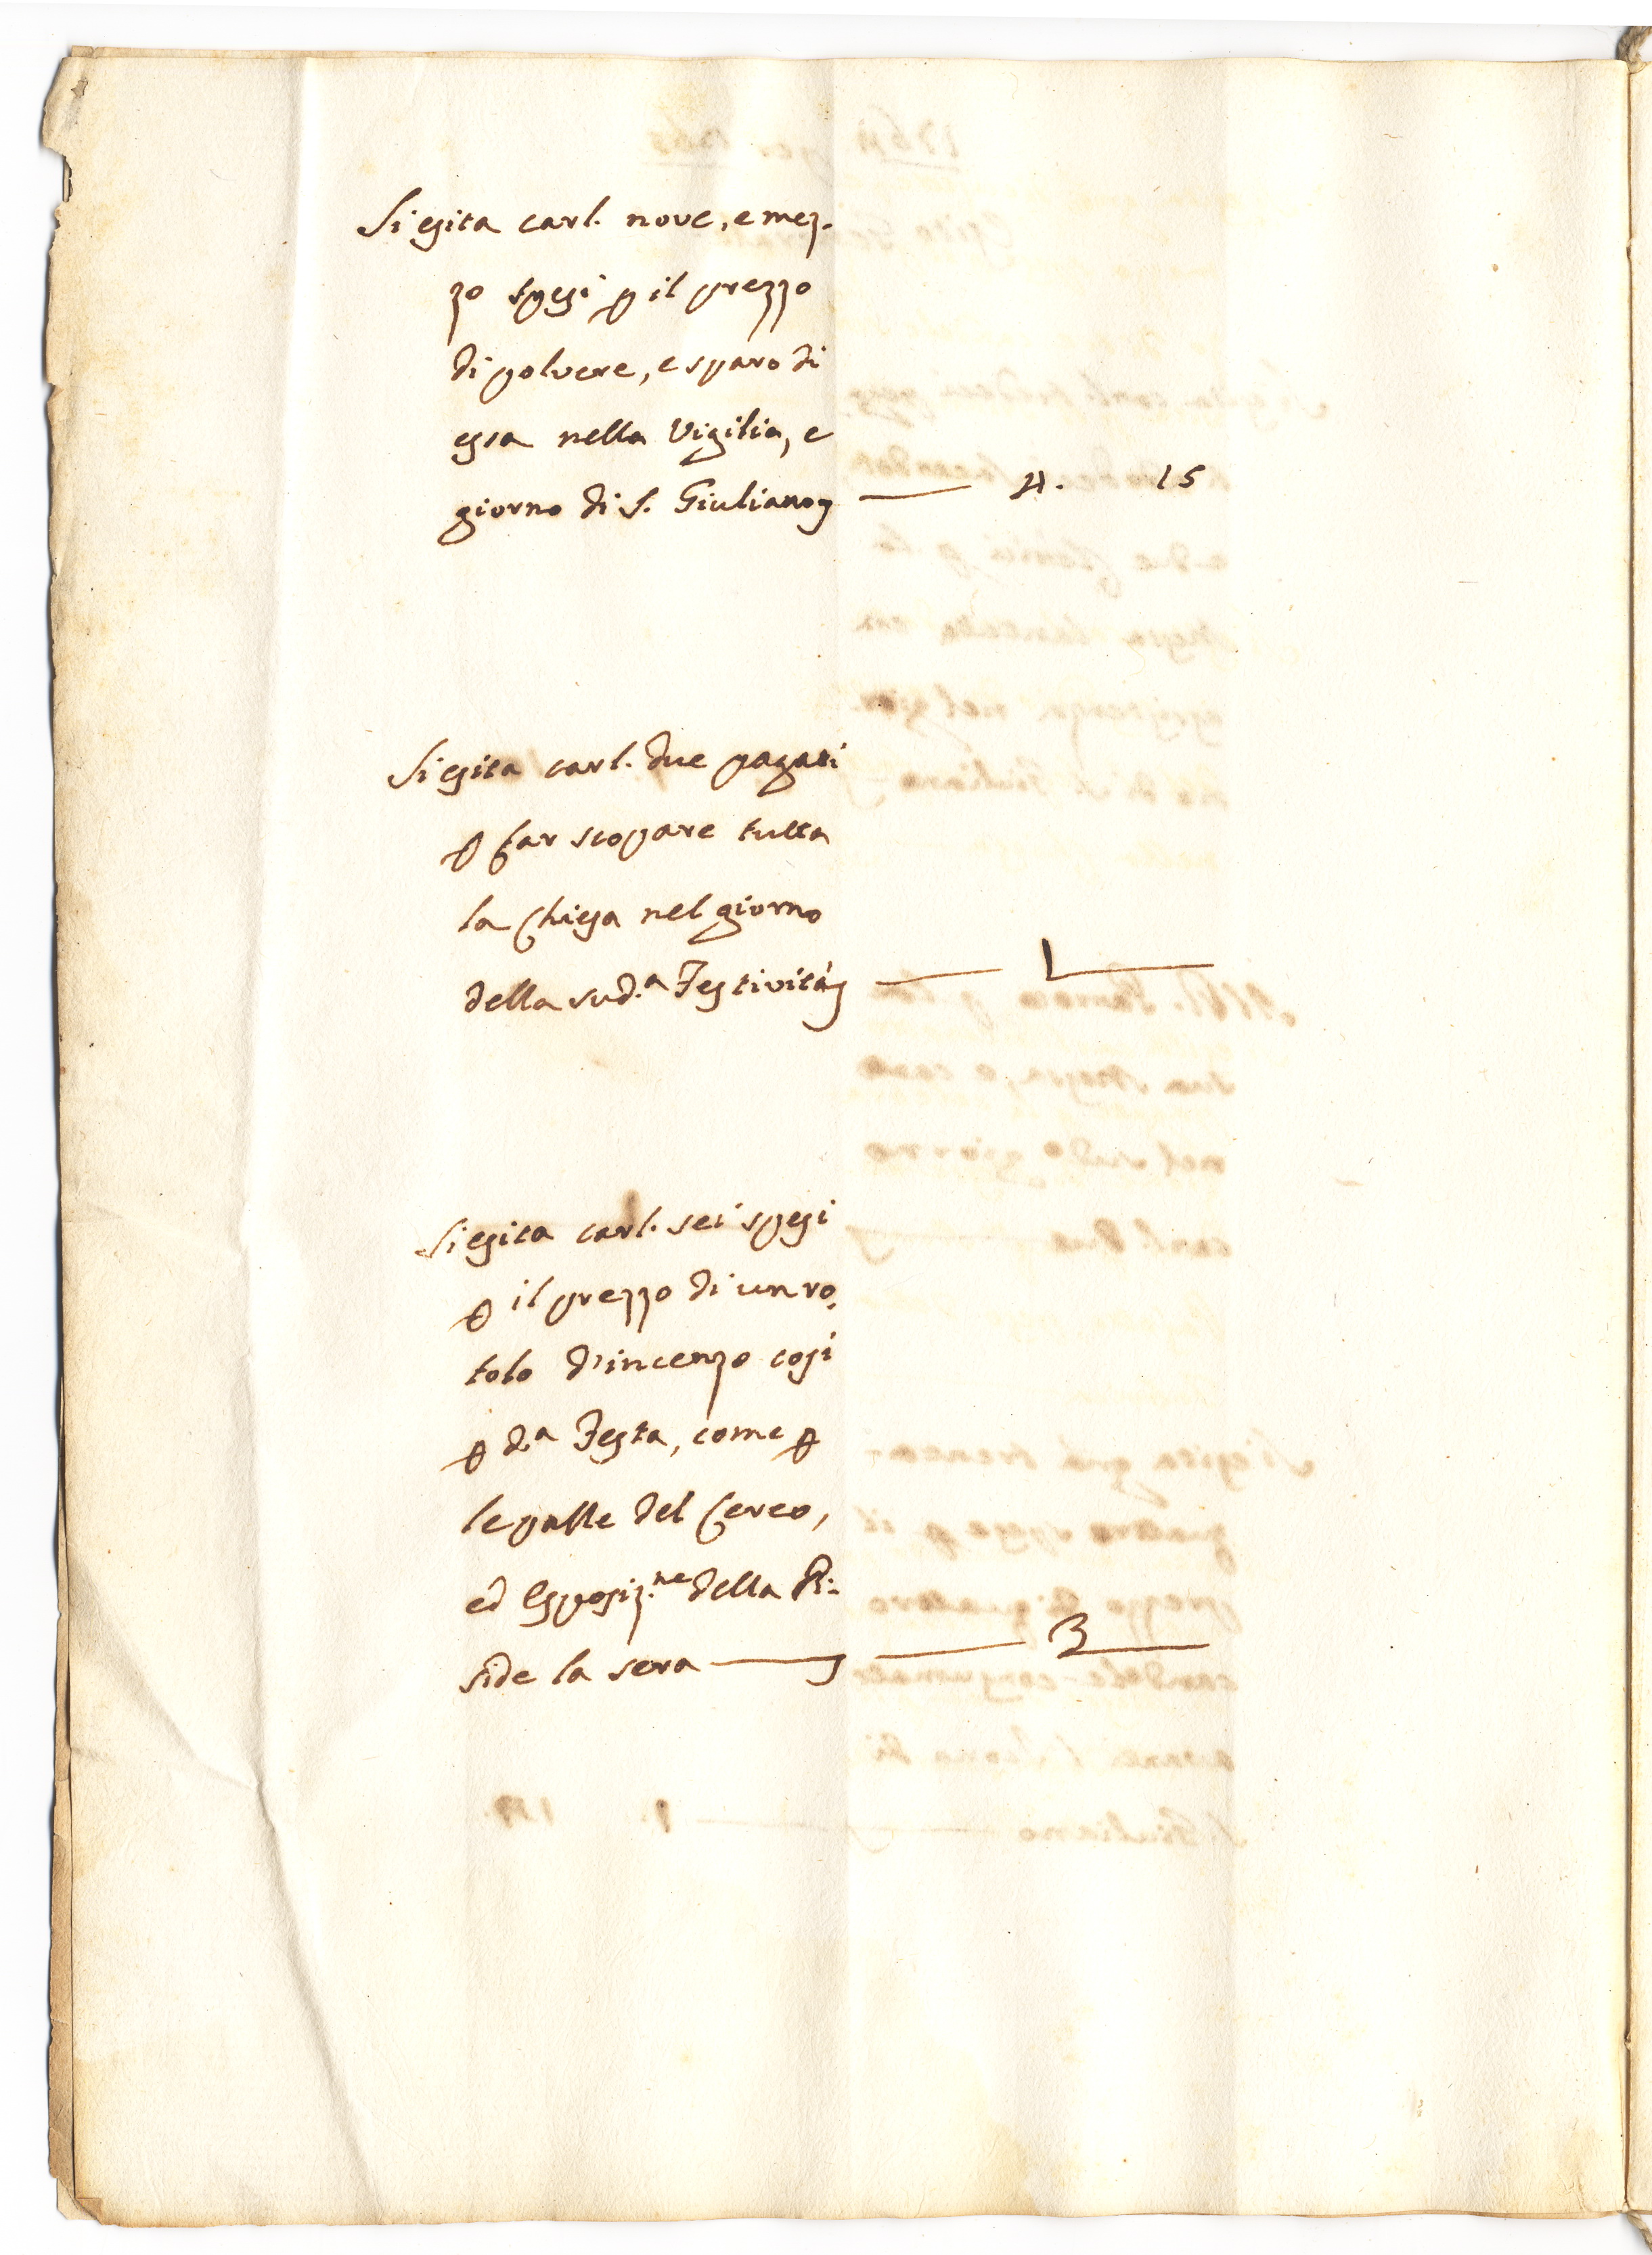 Si esita carl. nove, e mez-
zo spesi p il prezzo
di polvere, e sparo di
essa nella Vigilia, e
giorno di S. Giuliano — 4. 15
Si esita carl. due pagati
p far scopare tutta
la Chiesa nel giorno
della sud.a Festività — 1 —
Si esita carl. sei spesi
p il prezzo di un ro-
tolo d'incenzo così
p d.a Festa, come p
le palle del Cereo,
ed Esposiz.ne della Pi:
side la sera — 3 —